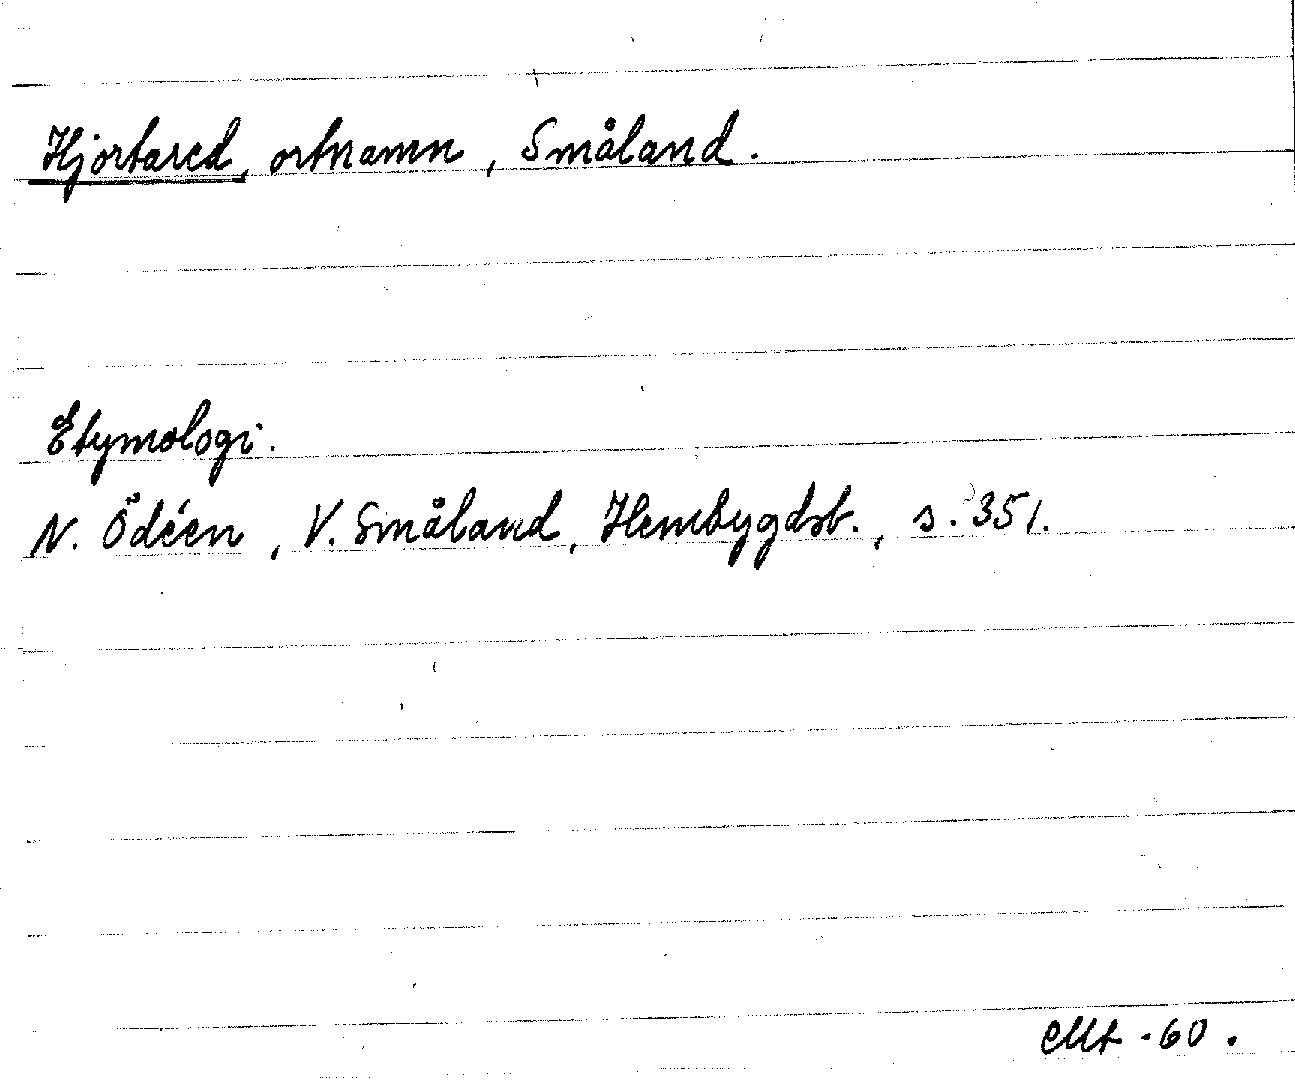 Hjortared, ortnamn, Småland.
Etymologi.
N. Ödéen, V. Småland, Hembygdsb., s. 351.
-60.